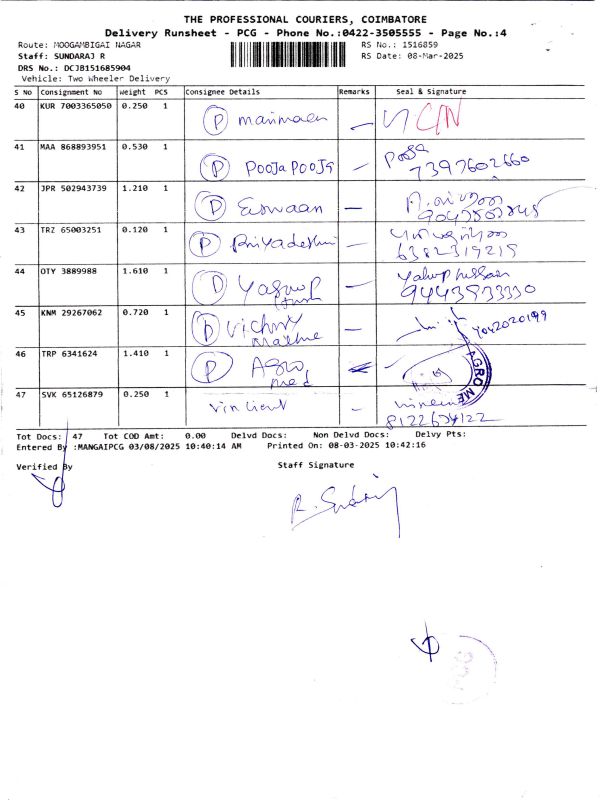 THE PROFESSIONAL COURIERS, COIMBATORE
Delivery Runsheet - PCG - Phone No.:0422-3505555 - Page No.:4
Route: MOOGAMBIGAI NAGAR
RS No.: 1516859
Staff: SUNDARAJ R
RS Date: 08-Mar-2025
DRS No.: DCJB151685904
Vehicle: Two Wheeler Delivery
S No Consignment No Weight PCS Consignee Details Remarks Seal & Signature
40 KUR 7003365050 0.250 1
P
41 MAA 868893951 0.530 1
P POOJA POOJA Pooja
7397602660
42 JPR 502943739 1.210 1
P
43 TRZ 65003251 0.120 1
P
6382319215
44 OTY 3889988 1.610 1
45 KNM 29267062 0.720 1
46 TRP 6341624 1.410 1
P Agro AGRO ME
med
47 SVK 65126879 0.250 1
Tot Docs: 47 Tot COD Amt: 0.00 Delvd Docs: Non Delvd Docs: Delvy Pts:
Entered By :MANGAIPCG 03/08/2025 10:40:14 AM Printed On: 08-03-2025 10:42:16
Verified By Staff Signature